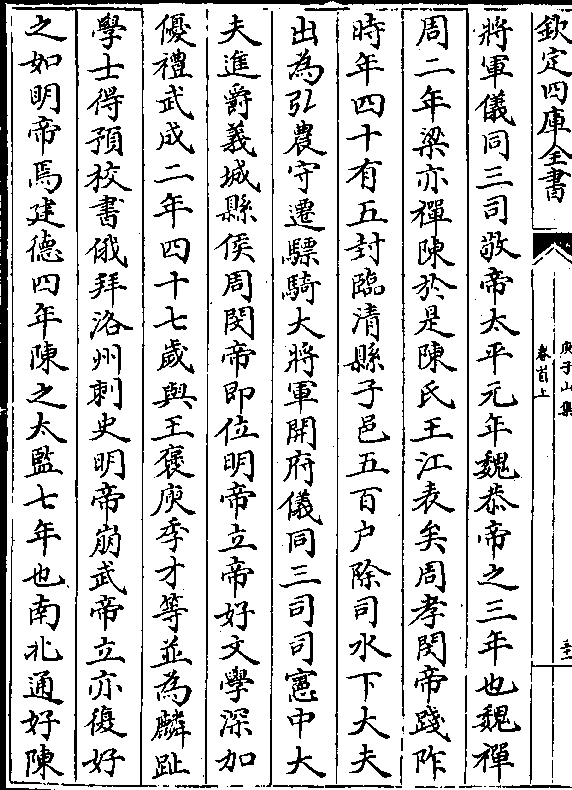 欽定四庫全書
庾子山集
卷首上
將軍儀同三司敬帝太平元年魏恭帝之三年也魏禪
周二年梁亦禪陳於是陳氏王江表矣周孝閔帝踐阼
時年四十有五封臨清縣子邑五百户除司水下大夫
出為弘農守遷驃騎大將軍開府儀同三司司憲中大
夫進爵義城縣侯周閔帝即位明帝立帝好文學深加
優禮武成二年四十七歲與王褒庾季才等並為麟趾
學士得預校書俄拜洛州刺史明帝崩武帝立亦復好
之如明帝焉建德四年陳之太監七年也南北通好陳